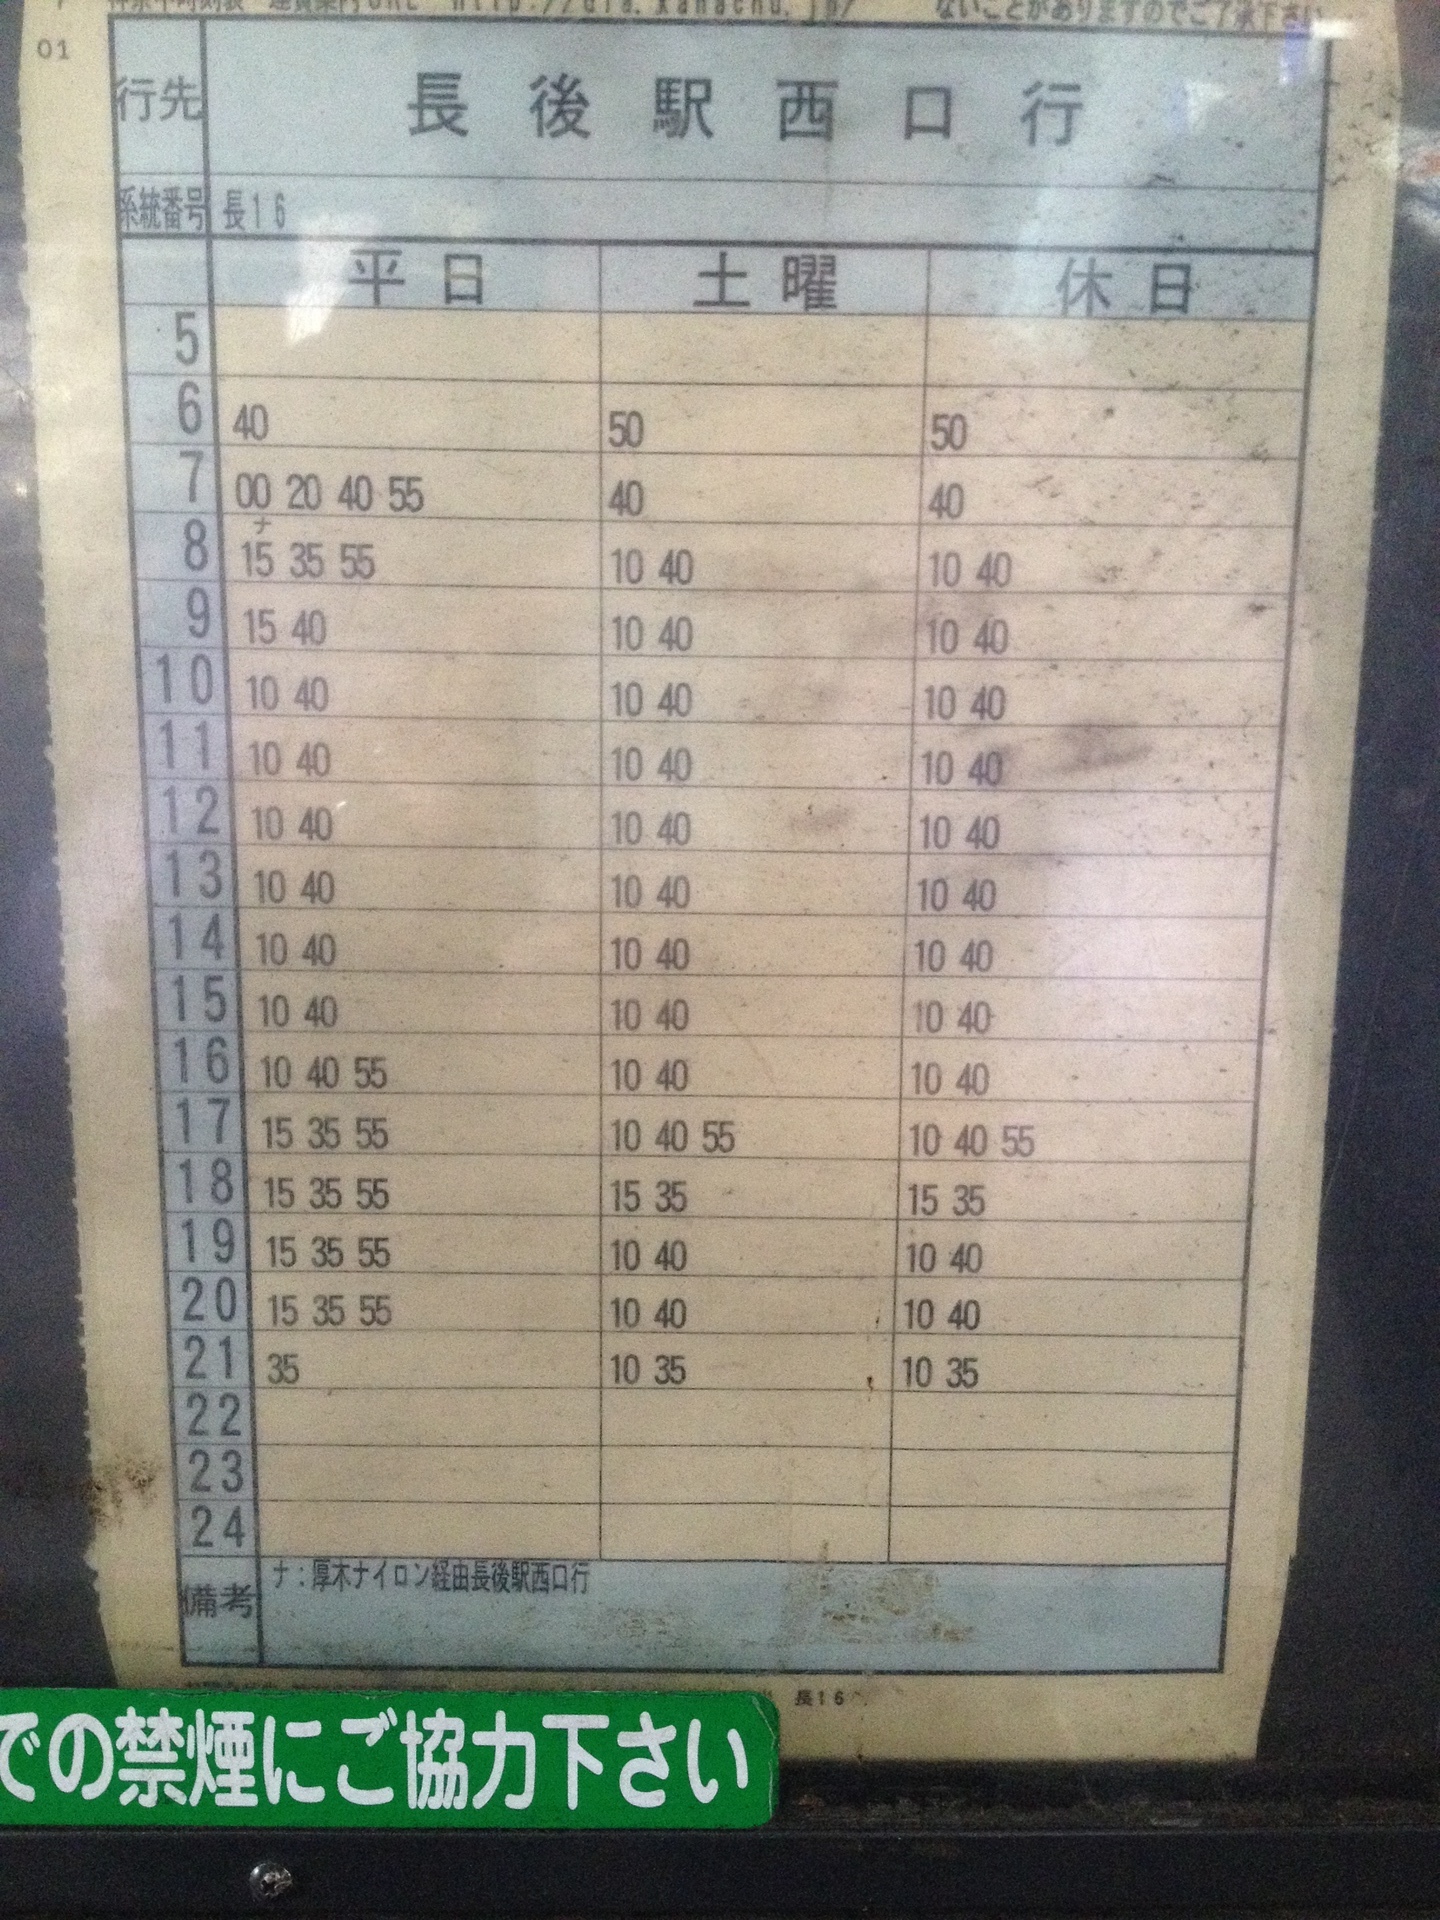 01
ないことがありますのでご了承下さい
行先 長後駅西口行
系統番号 長16
平日 土曜 休日
5
6 40 50 50
7 00 20 40 55 40 40
ナ
8 15 35 55 10 40 10 40
9 15 40 10 40 10 40
10 10 40 10 40 10 40
11 10 40 10 40 10 40
12 10 40 10 40 10 40
13 10 40 10 40 10 40
14 10 40 10 40 10 40
15 10 40 10 40 10 40
16 10 40 55 10 40 10 40
17 15 35 55 10 40 55 10 40 55
18 15 35 55 15 35 15 35
19 15 35 55 10 40 10 40
20 15 35 55 10 40 10 40
21 35 10 35 10 35
22
23
24
備考 ナ:厚木ナイロン経由長後駅西口行
長16
での禁煙にご協力下さい